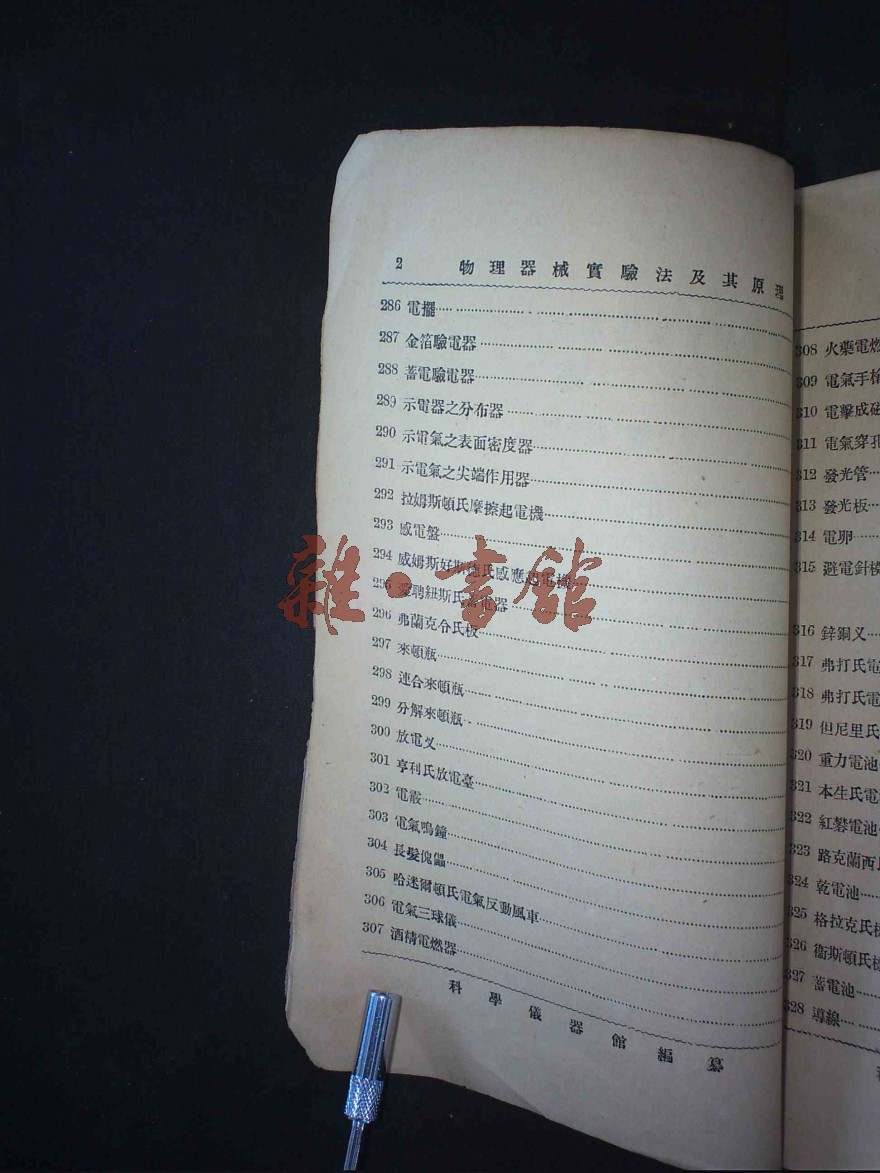 2 物理器械實驗法及其原理
286 電擺
287 金箔驗電器
288 蓄電驗電器
289 示電器之分布器
290 示電氣之表面密度器
291 示電氣之尖端作用器
292 拉姆斯頓氏摩擦起電機
293 感電盤
294 威姆斯好斯德氏感應起電機
295 愛聘紐斯氏蓄電器
296 弗蘭克令氏板
297 來頓瓶
298 連合來頓瓶
299 分解來頓瓶
300 放電叉
301 亨利氏放電臺
302 電霰
303 電氣鳴鐘
304 長髮傀儡
305 哈迷爾頓氏電氣反動風車
306 電氣三球儀
307 酒精電燃器
科學儀器館編纂
308 火藥電燃
309 電氣手槍
310 電擊成磁
311 電氣穿孔
312 發光管
313 發光板
314 電卵
315 避電針模
316 鋅銅叉
317 弗打氏電
318 弗打氏電
319 但尼里氏
320 重力電池
321 本生氏電
322 紅礬電池
323 路克蘭西氏
324 乾電池
325 格拉克氏
326 衞斯頓氏
327 蓄電池
328 導線
雜·書館